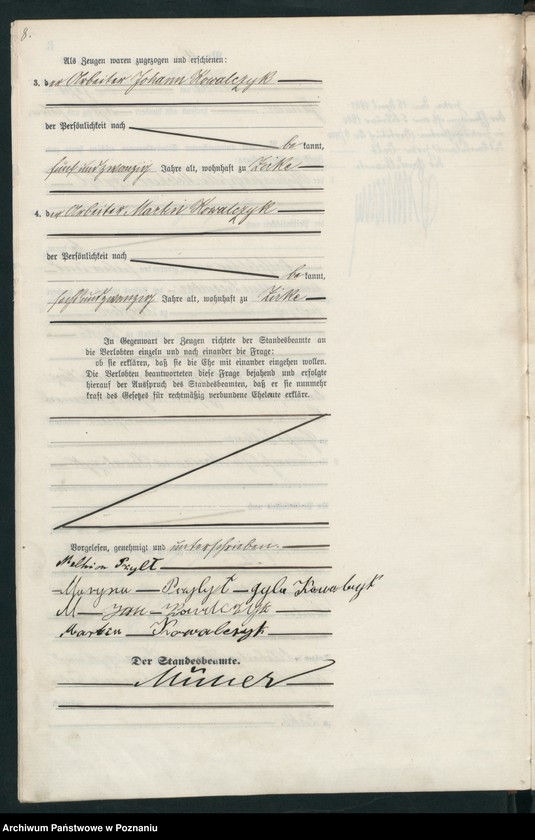 8.
Als Zeugen waren zugezogen und erschienen:
3. der Arbeiter Johann Kowalczyk
der Persönlichkeit nach
be kannt,
fünfundzwanzig Jahre alt, wohnhaft zu Zirke
4. der Arbeiter Martin Kowalczyk
der Persönlichkeit nach
be kannt,
sechsundzwanzig Jahre alt, wohnhaft zu Zirke
In Gegenwart der Zeugen richtete der Standesbeamte an
die Verlobten einzeln und nach einander die Frage:
ob sie erklären, daß sie die Ehe mit einander eingehen wollen.
Die Verlobten beantworteten diese Frage bejahend und erfolgte
hierauf der Ausspruch des Standesbeamten, daß er sie nunmehr
kraft des Gesetzes für rechtmäßig verbundene Eheleute erkläre.
Vorgelesen, genehmigt und unterschrieben
Maryna Kowalczyk
Jan
Martin Kowalczyk
Der Standesbeamte.
Archiwum Państwowe w Poznaniu